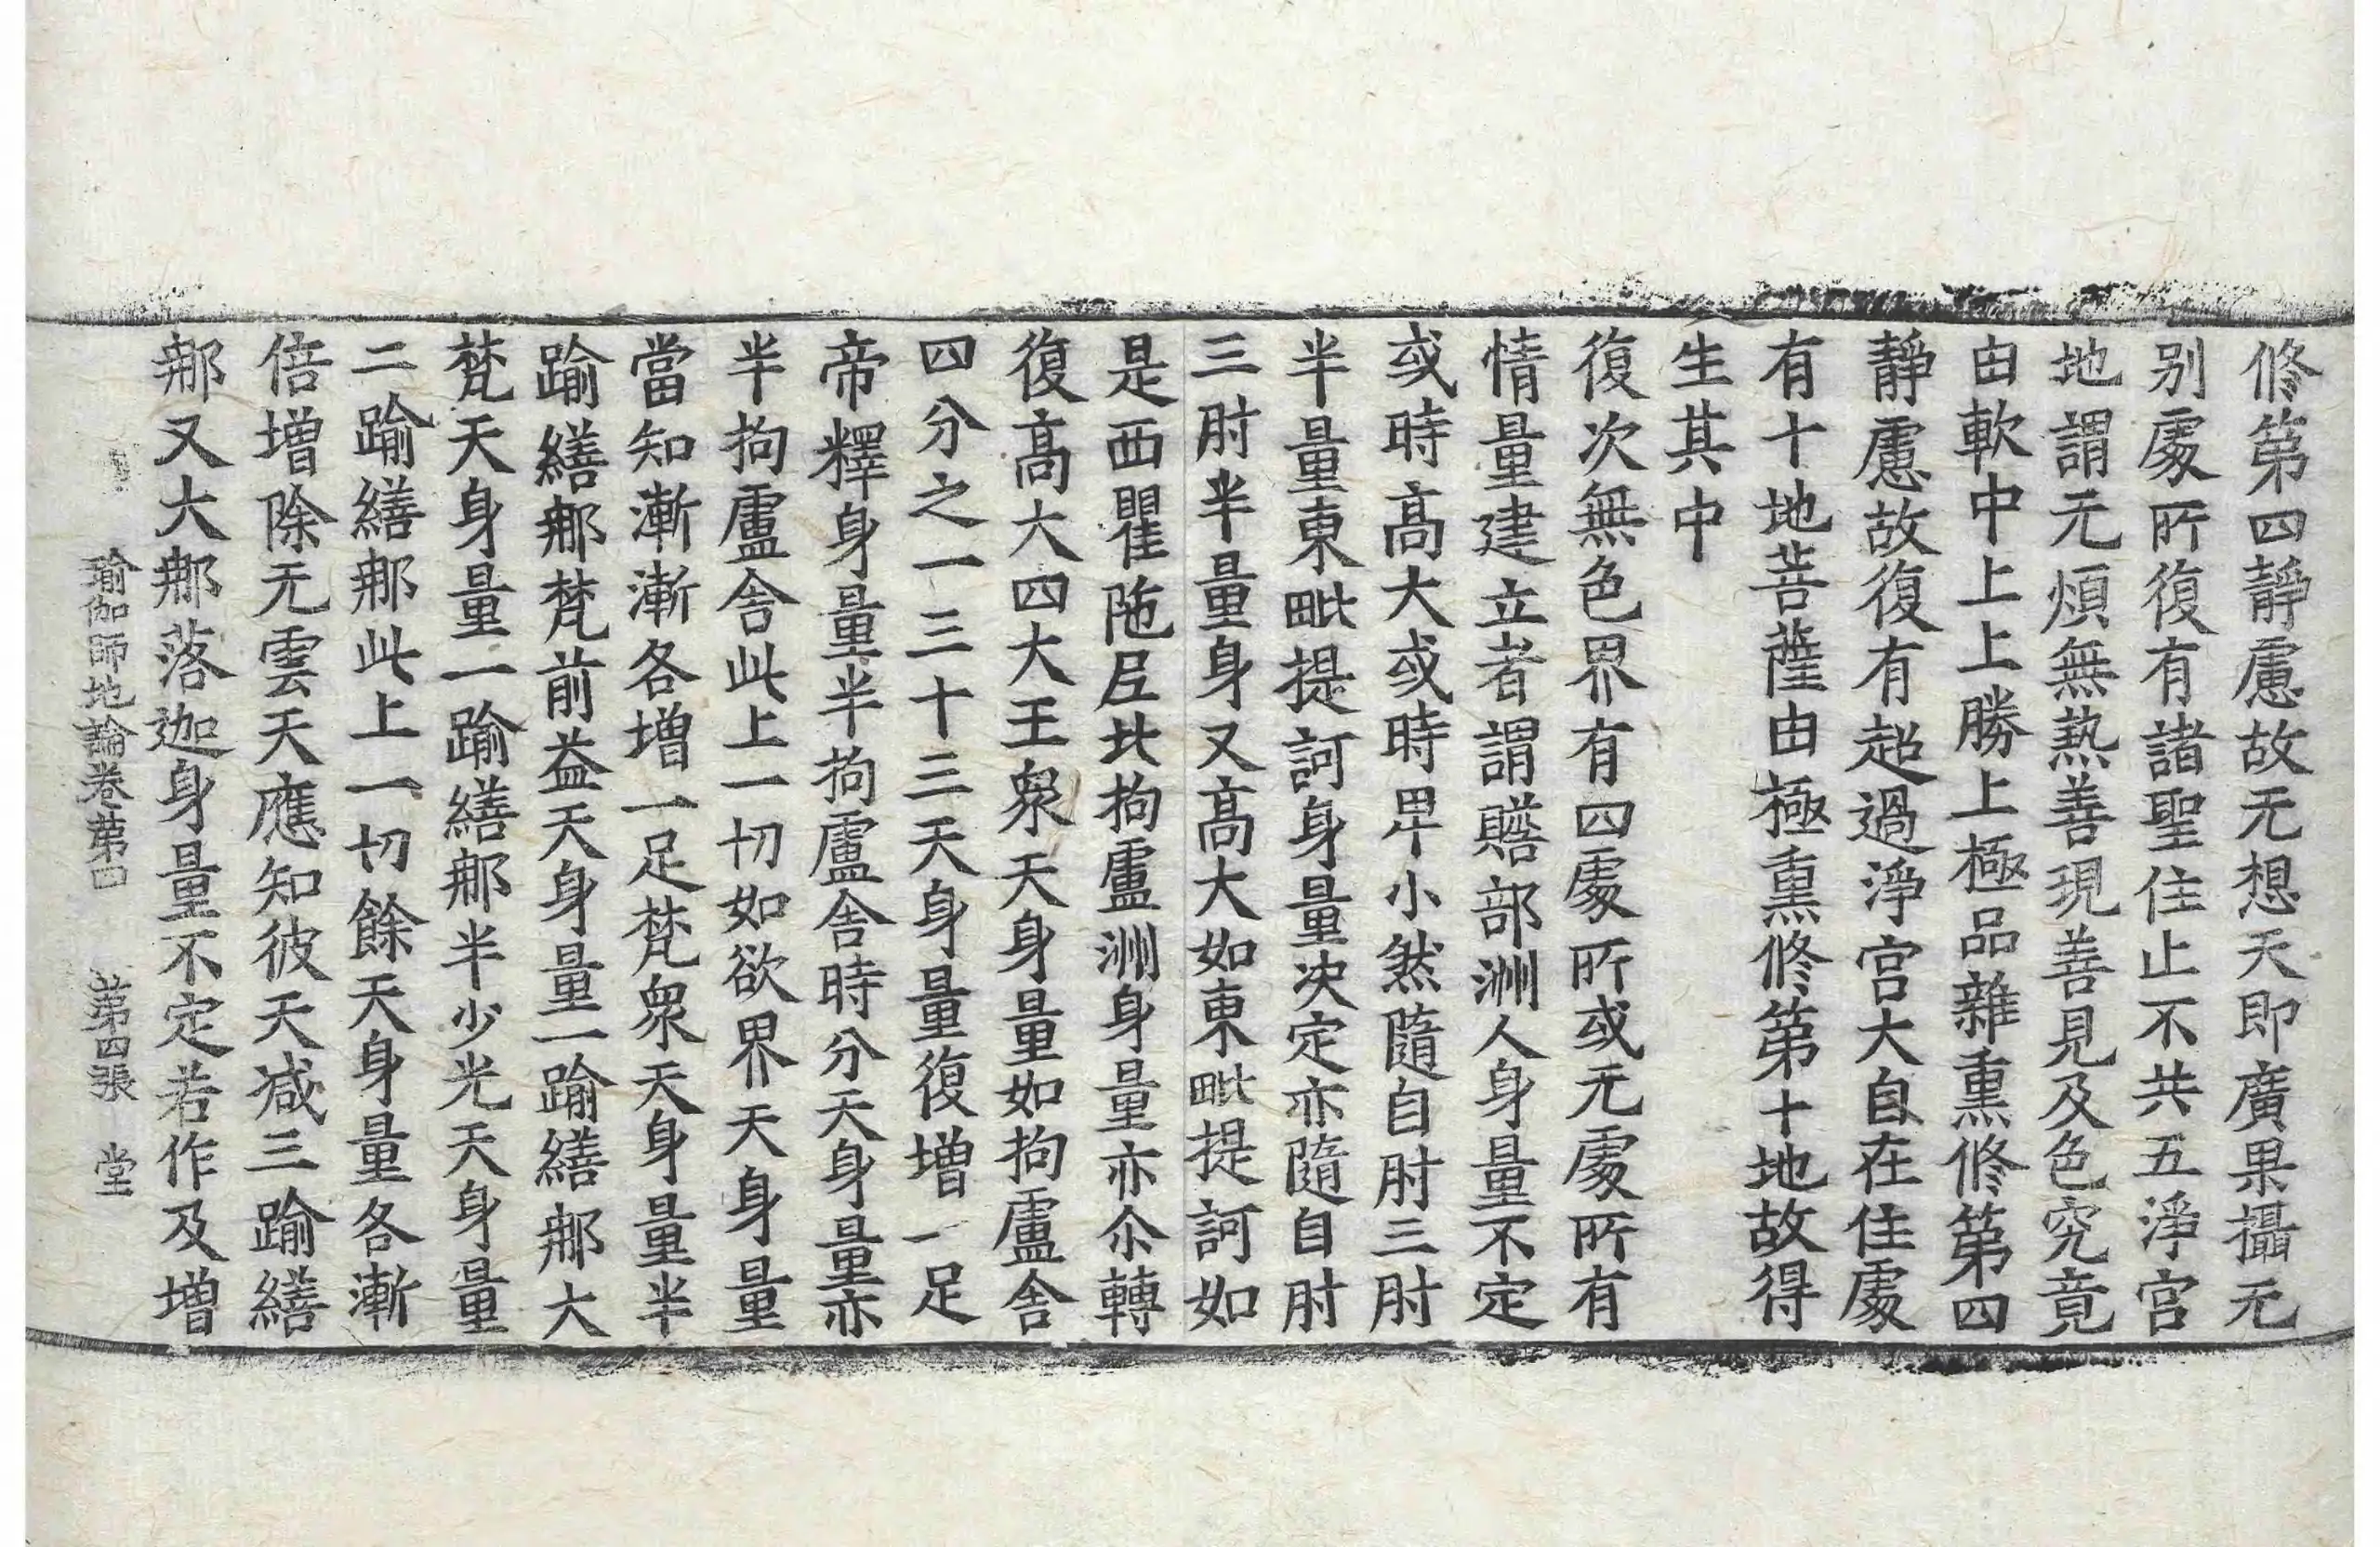 修第四靜慮故无想天即廣果攝无
别處所復有諸聖住止不共五淨宮
地謂无煩無熱善現善見及色究竟
由軟中上上勝上極品雜熏修第四
靜慮故復有超過淨宮大自在住處
有十地菩薩由極熏修第十地故得
生其中
復次無色界有四處所或无處所有
情量建立者謂贍部洲人身量不定
或時高大或時卑小然隨自肘三肘
半量東毗提訶身量决定亦隨自肘
三肘半量身又高大如東毗提訶如
是西瞿陁尼北拘盧洲身量亦尒轉
復高大四大王衆天身量如拘盧舍
四分之一三十三天身量復增一足
帝釋身量半拘盧舍時分天身量亦
半拘盧舍此上一切如欲界天身量
當知漸漸各增一足梵衆天身量半
踰繕那梵前益天身量一踰繕那大
梵天身量一踰繕那半少光天身量
二踰繕那此上一切餘天身量各漸
倍增除无雲天應知彼天减三踰繕
那又大那落迦身量不定若作及增
瑜伽師地論卷第四 第四張 堂